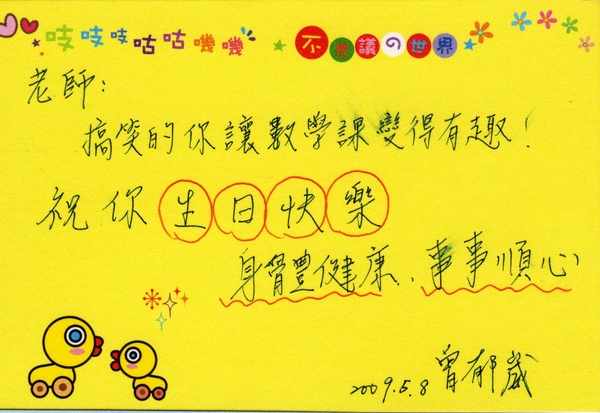 吱吱吱咕咕嘰嘰 不思議の世界
老師:
搞笑的你讓數學課變得有趣!
祝你生日快樂
身體健康、事事順心
2009.5.8 曾郁崴